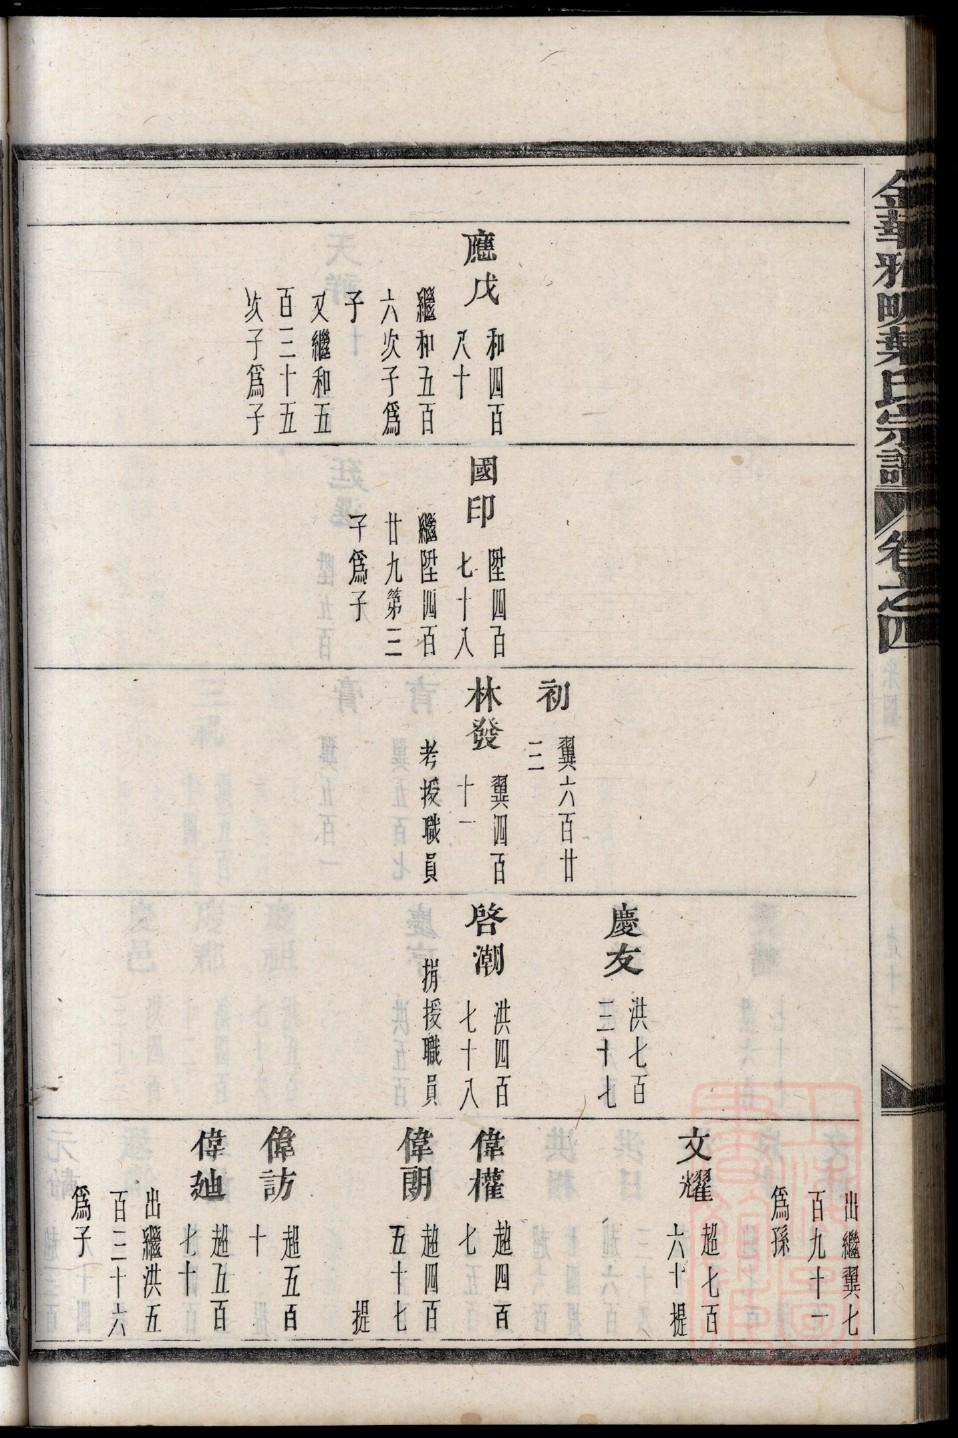 金華雅畈葉氏宗譜 卷之四
應戊
和四百
八十
繼和五百
六次子爲
子
又繼和五
百三十五
次子爲子
國印
陞四百
七十八
繼陞四百
廿九第三
子爲子
初
翼六百廿
三
林發
翼四百
十一
考授職員
慶友
洪七百
三十七
啓潮
洪四百
七十八
捐授職員
出繼翼七
百九十一
爲孫
文耀
超七百
六十 提
偉權
超四百
七
偉朗
超四百
五十七
提
偉訪
超五百
十
偉迪
超五百
七十
出繼洪五
百三十六
爲子